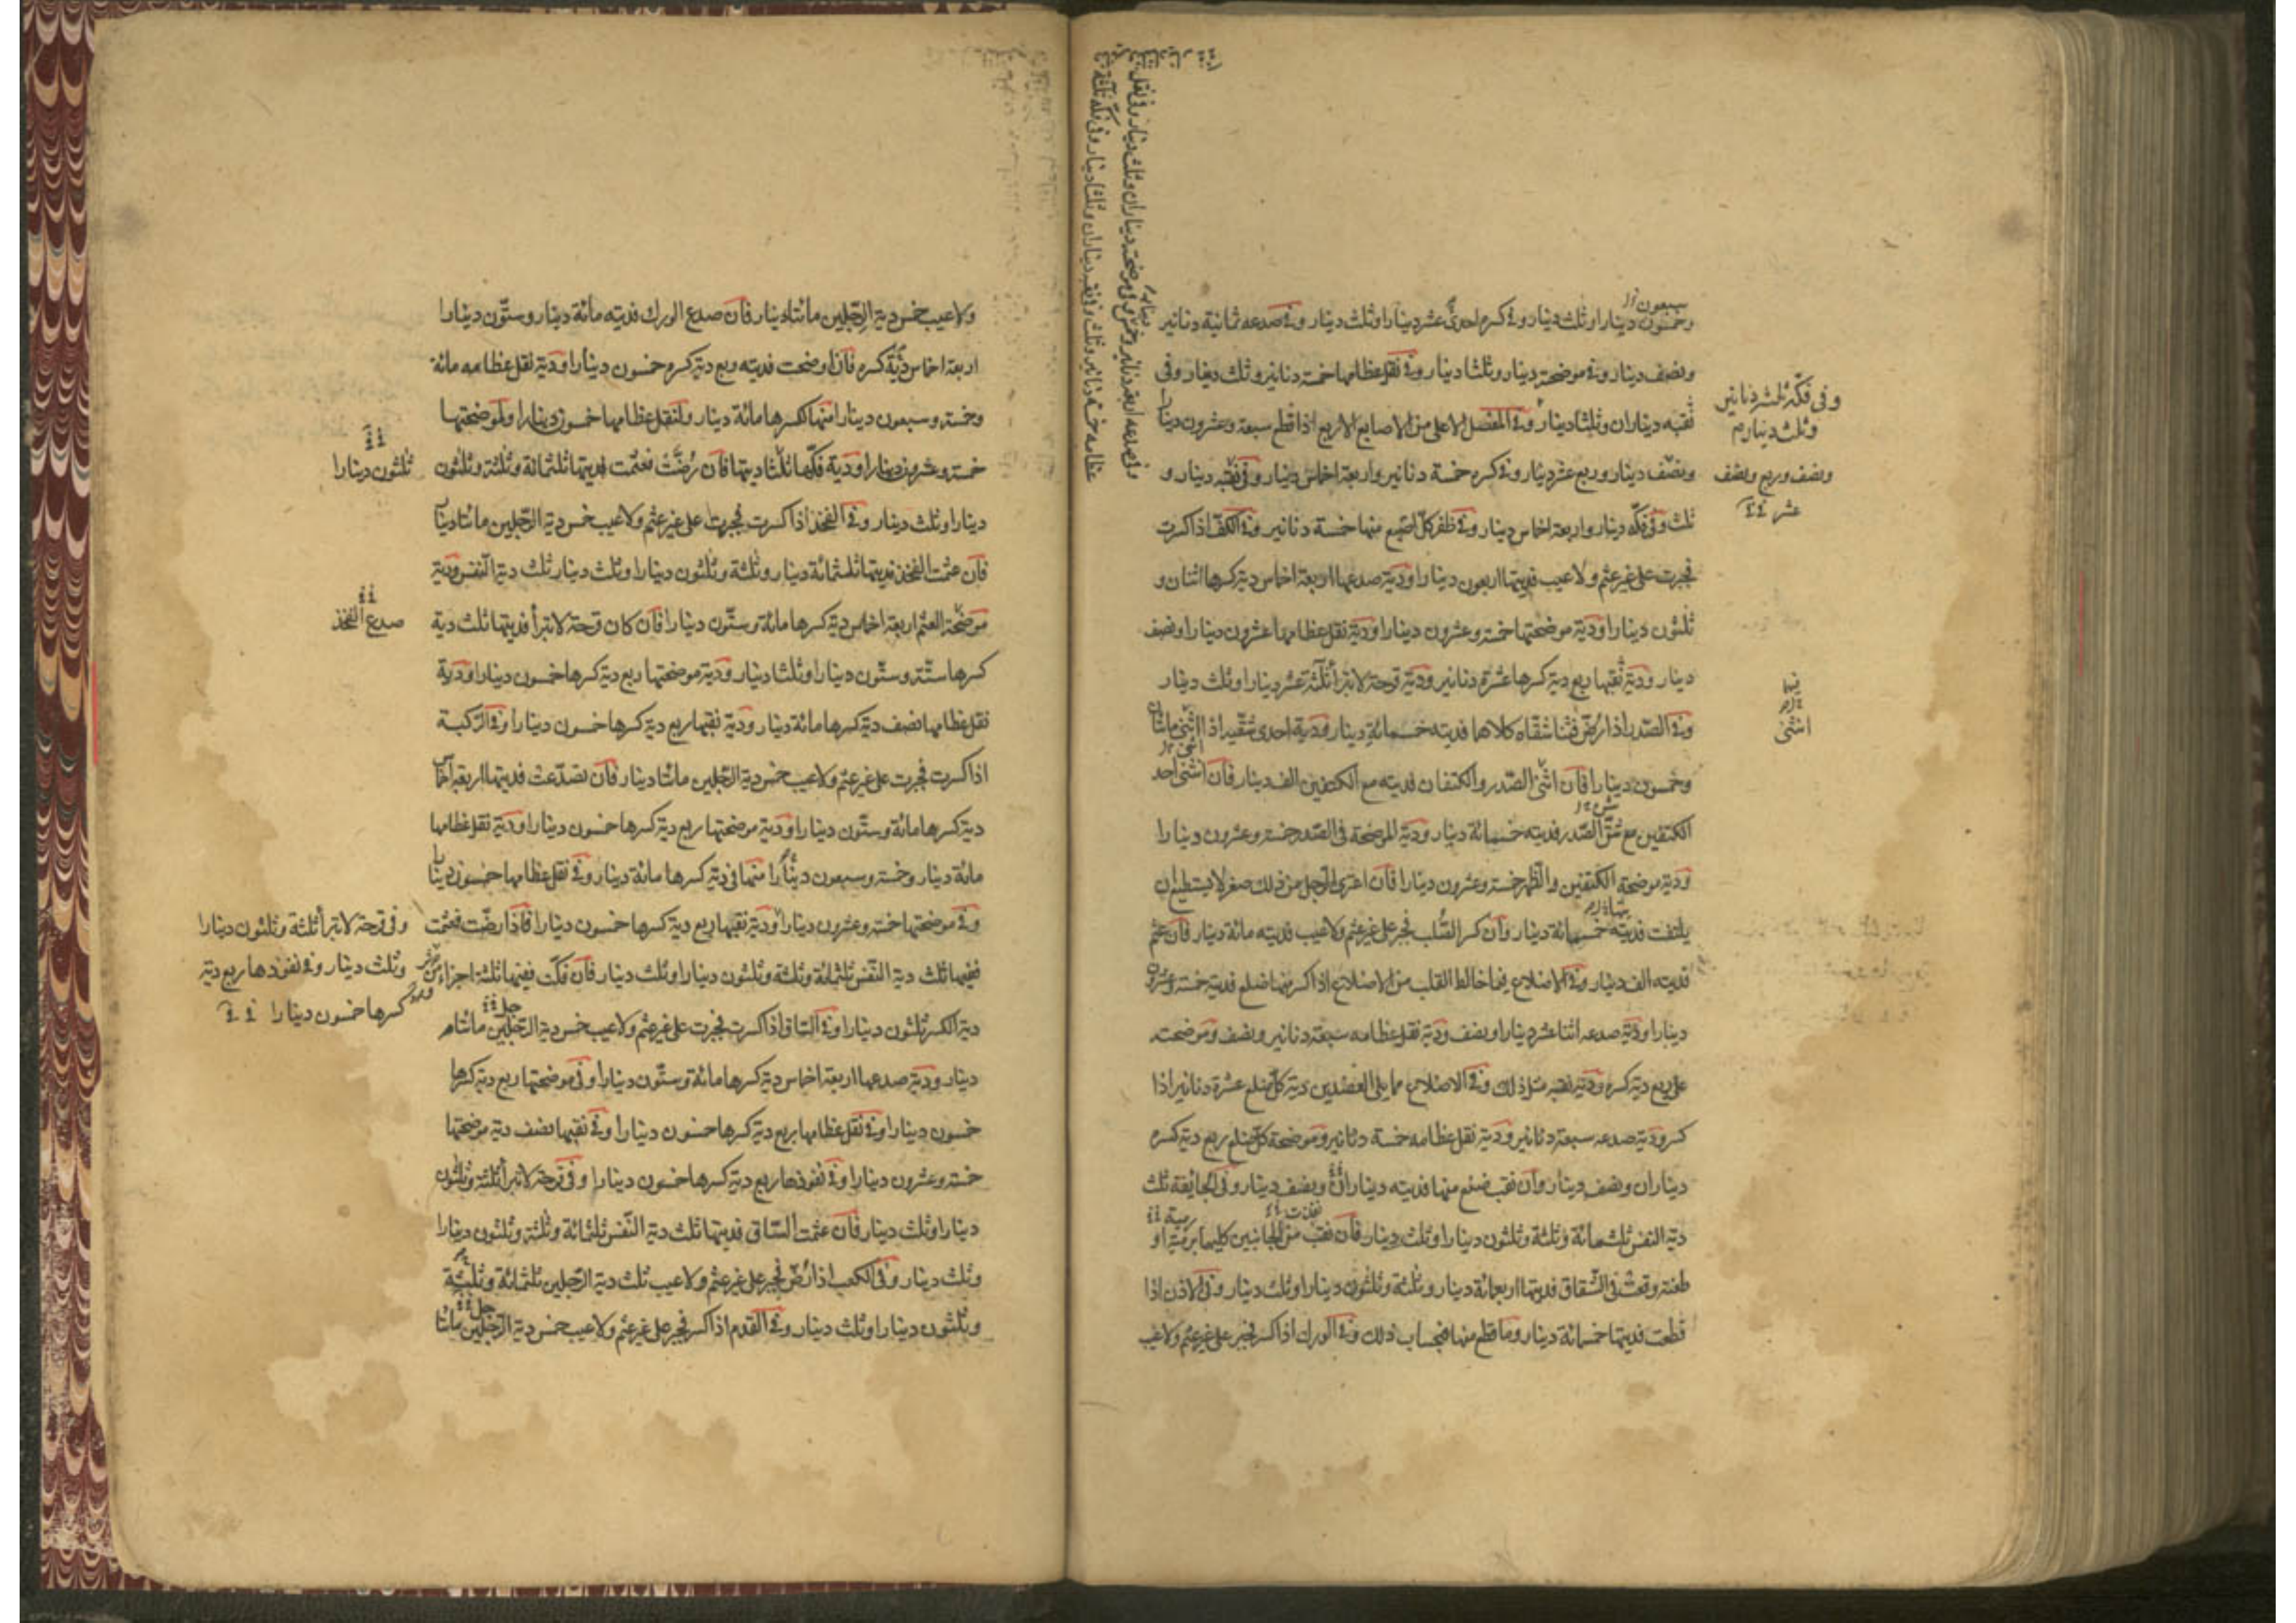 وخمسون دينارا وثلث دينار وفي كسره احدى عشر دينارا وثلث دينار وفي صدعه ثمانية دنانير
ونصف دينار وفي موضحته دينار وثلثا دينار وفي نقل عظامها خمسة دنانير وثلث دينار وفي
نقبه ديناران وثلثا دينار وفي المفصل الاعلى من الاصابع الاربع اذا قطع سبعة وعشرون دينارا
ونصف دينار وربع عشر دينار وفي كسره خمسة دنانير واربعة اخماس دينار وفي نقبه دينار و
ثلث وفي فكّه دينار واربعة اخماس دينار وفي ظفر كلّ اصبع منها خمسة دنانير وفي الكفّ اذا كسرت
فجبرت على غير عثم ولا عيب فديتها اربعون دينارا ودية صدعها اربعة اخماس دية كسرها اثنان و
ثلثون دينارا ودية موضحتها خمسة وعشرون دينارا ودية نقل عظامها عشرون دينارا ونصف
دينار ودية نقبها ربع دية كسرها عشرة دنانير ودية قرحة لا تبرأ ثلثة عشر دينارا وثلث دينار
وفي الصّدر اذا رضّ فثنا شقّاه كلاهما فديته خمسمائة دينار ودية احدى شقّيه اذا انثنى مائتان
وخمسون دينارا فان انثنى الصّدر والكتفان فديته مع الكتفين الف دينار فان انثنى احد
الكتفين مع شقّ الصّدر فديته خمسمائة دينار ودية الموضحة في الصّدر خمسة وعشرون دينارا
ودية موضحة الكتفين والظهر خمسة وعشرون دينارا فان اعترى الرّجل من ذلك صعر لا يستطيع ان
يلتفت فديته خمسمائة دينار وان كسر الصّلب فجبر على غير عثم ولا عيب فديته مائة دينار فان عثم
فديته الف دينار وفي الاضلاع فيما خالط القلب من الاضلاع اذا كسر منها ضلع فديته خمسة وعشرون
دينارا ودية صدعه اثنا عشر دينارا ونصف ودية نقل عظامه سبعة دنانير ونصف وموضحته
على ربع دية كسره ودية نقبه مثل ذلك وفي الاضلاع مما يلى العضدين دية كلّ ضلع عشرة دنانير اذا
كسر ودية صدعه سبعة دنانير ودية نقل عظامه خمسة دنانير وموضحة كلّ ضلع ربع دية كسره
ديناران ونصف دينار وان نقب ضلع منها فديته ديناران ونصف دينار وفي الجائفة ثلث
دية النفس ثلثمائة وثلثة وثلثون دينارا وثلث دينار فان نقب من الجانبين كليهما برمية او
طعنة وقعت في الشّقاق فديتها اربعمائة دينار وثلثة وثلثون دينارا وثلث دينار وفي الاذن اذا
قطعت فديتها خمسمائة دينار وما قطع منها فبحساب ذلك وفي الورك اذا كسر فجبر على غير عثم ولا عيب
سبعون
وفي فكّه ثلثة دنانير
وثلث دينار
ونصف وربع ونصف
عشر
فيها
انثنى
ولا عيب خمس دية الرّجلين مائتا دينار فان صدع الورك فديته مائة دينار وستّون دينارا
اربعة اخماس دية كسره فان اوضحت فديته ربع دية كسره خمسون دينارا ودية نقل عظامه مائة
وخمسة وسبعون دينارا منها لكسرها مائة دينار ولنقل عظامها خمسون دينارا ولموضحتها
خمسة وعشرون دينارا ودية فكّها ثلثا ديتها فان رُضّت فعثمت فديتها ثلثمائة وثلثة وثلثون
دينارا وثلث دينار وفي الفخذ اذا كسرت فجبرت على غير عثم ولا عيب خمس دية الرّجلين مائتا دينار
فان عثمت الفخذ فديتها ثلثمائة دينار وثلثة وثلثون دينارا وثلث دينار ثلث دية النّفس ودية
موضحة العثم اربعة اخماس دية كسرها مائة وستّون دينارا فان كان قرحة لا تبرأ فديتها ثلث دية
كسرها ستّة وستّون دينارا وثلثا دينار ودية موضحتها ربع دية كسرها خمسون دينارا ودية
نقل عظامها نصف دية كسرها مائة دينار ودية نقبها ربع دية كسرها خمسون دينارا وفي الرّكبة
اذا كسرت فجبرت على غير عثم ولا عيب خمس دية الرّجلين مائتا دينار فان تصدّعت فديتها اربعة اخماس
دية كسرها مائة وستّون دينارا ودية موضحتها ربع دية كسرها خمسون دينارا ودية نقل عظامها
مائة دينار وخمسة وسبعون دينارا منها في دية كسرها مائة دينار وفي نقل عظامها خمسون دينارا
وفي موضحتها خمسة وعشرون دينارا ودية نقبها ربع دية كسرها خمسون دينارا فاذا رضّت فعثمت
ففيها ثلث دية النّفس ثلثمائة وثلثة وثلثون دينارا وثلث دينار فان فكّت ففيها ثلثة اجزاء من
دية الكسر ثلثون دينارا وفي السّاق اذا كسرت فجبرت على غير عثم ولا عيب خمس دية الرّجلين مائتا
دينار ودية صدعها اربعة اخماس دية كسرها مائة وستّون دينارا وفي موضحتها ربع دية كسرها
خمسون دينارا وفي نقل عظامها ربع دية كسرها خمسون دينارا وفي نقبها نصف دية موضحتها
خمسة وعشرون دينارا وفي نفوذها ربع دية كسرها خمسون دينارا وفي قرحة لا تبرأ ثلثة وثلثون
دينارا وثلث دينار فان عثمت السّاق فديتها ثلث دية النّفس ثلثمائة وثلثة وثلثون دينارا
وثلث دينار وفي الكعب اذا رُضّ فجبر على غير عثم ولا عيب ثلث دية الرّجلين ثلثمائة وثلثة
وثلثون دينارا وثلث دينار وفي القدم اذا كسر فجبر على غير عثم ولا عيب خمس دية الرّجلين مائتا
ثلثون دينارا
صدع الفخذ
وفي قرحة لا تبرأ ثلثة وثلثون دينارا
وثلث دينار وفي نفوذها ربع دية
كسرها خمسون دينارا